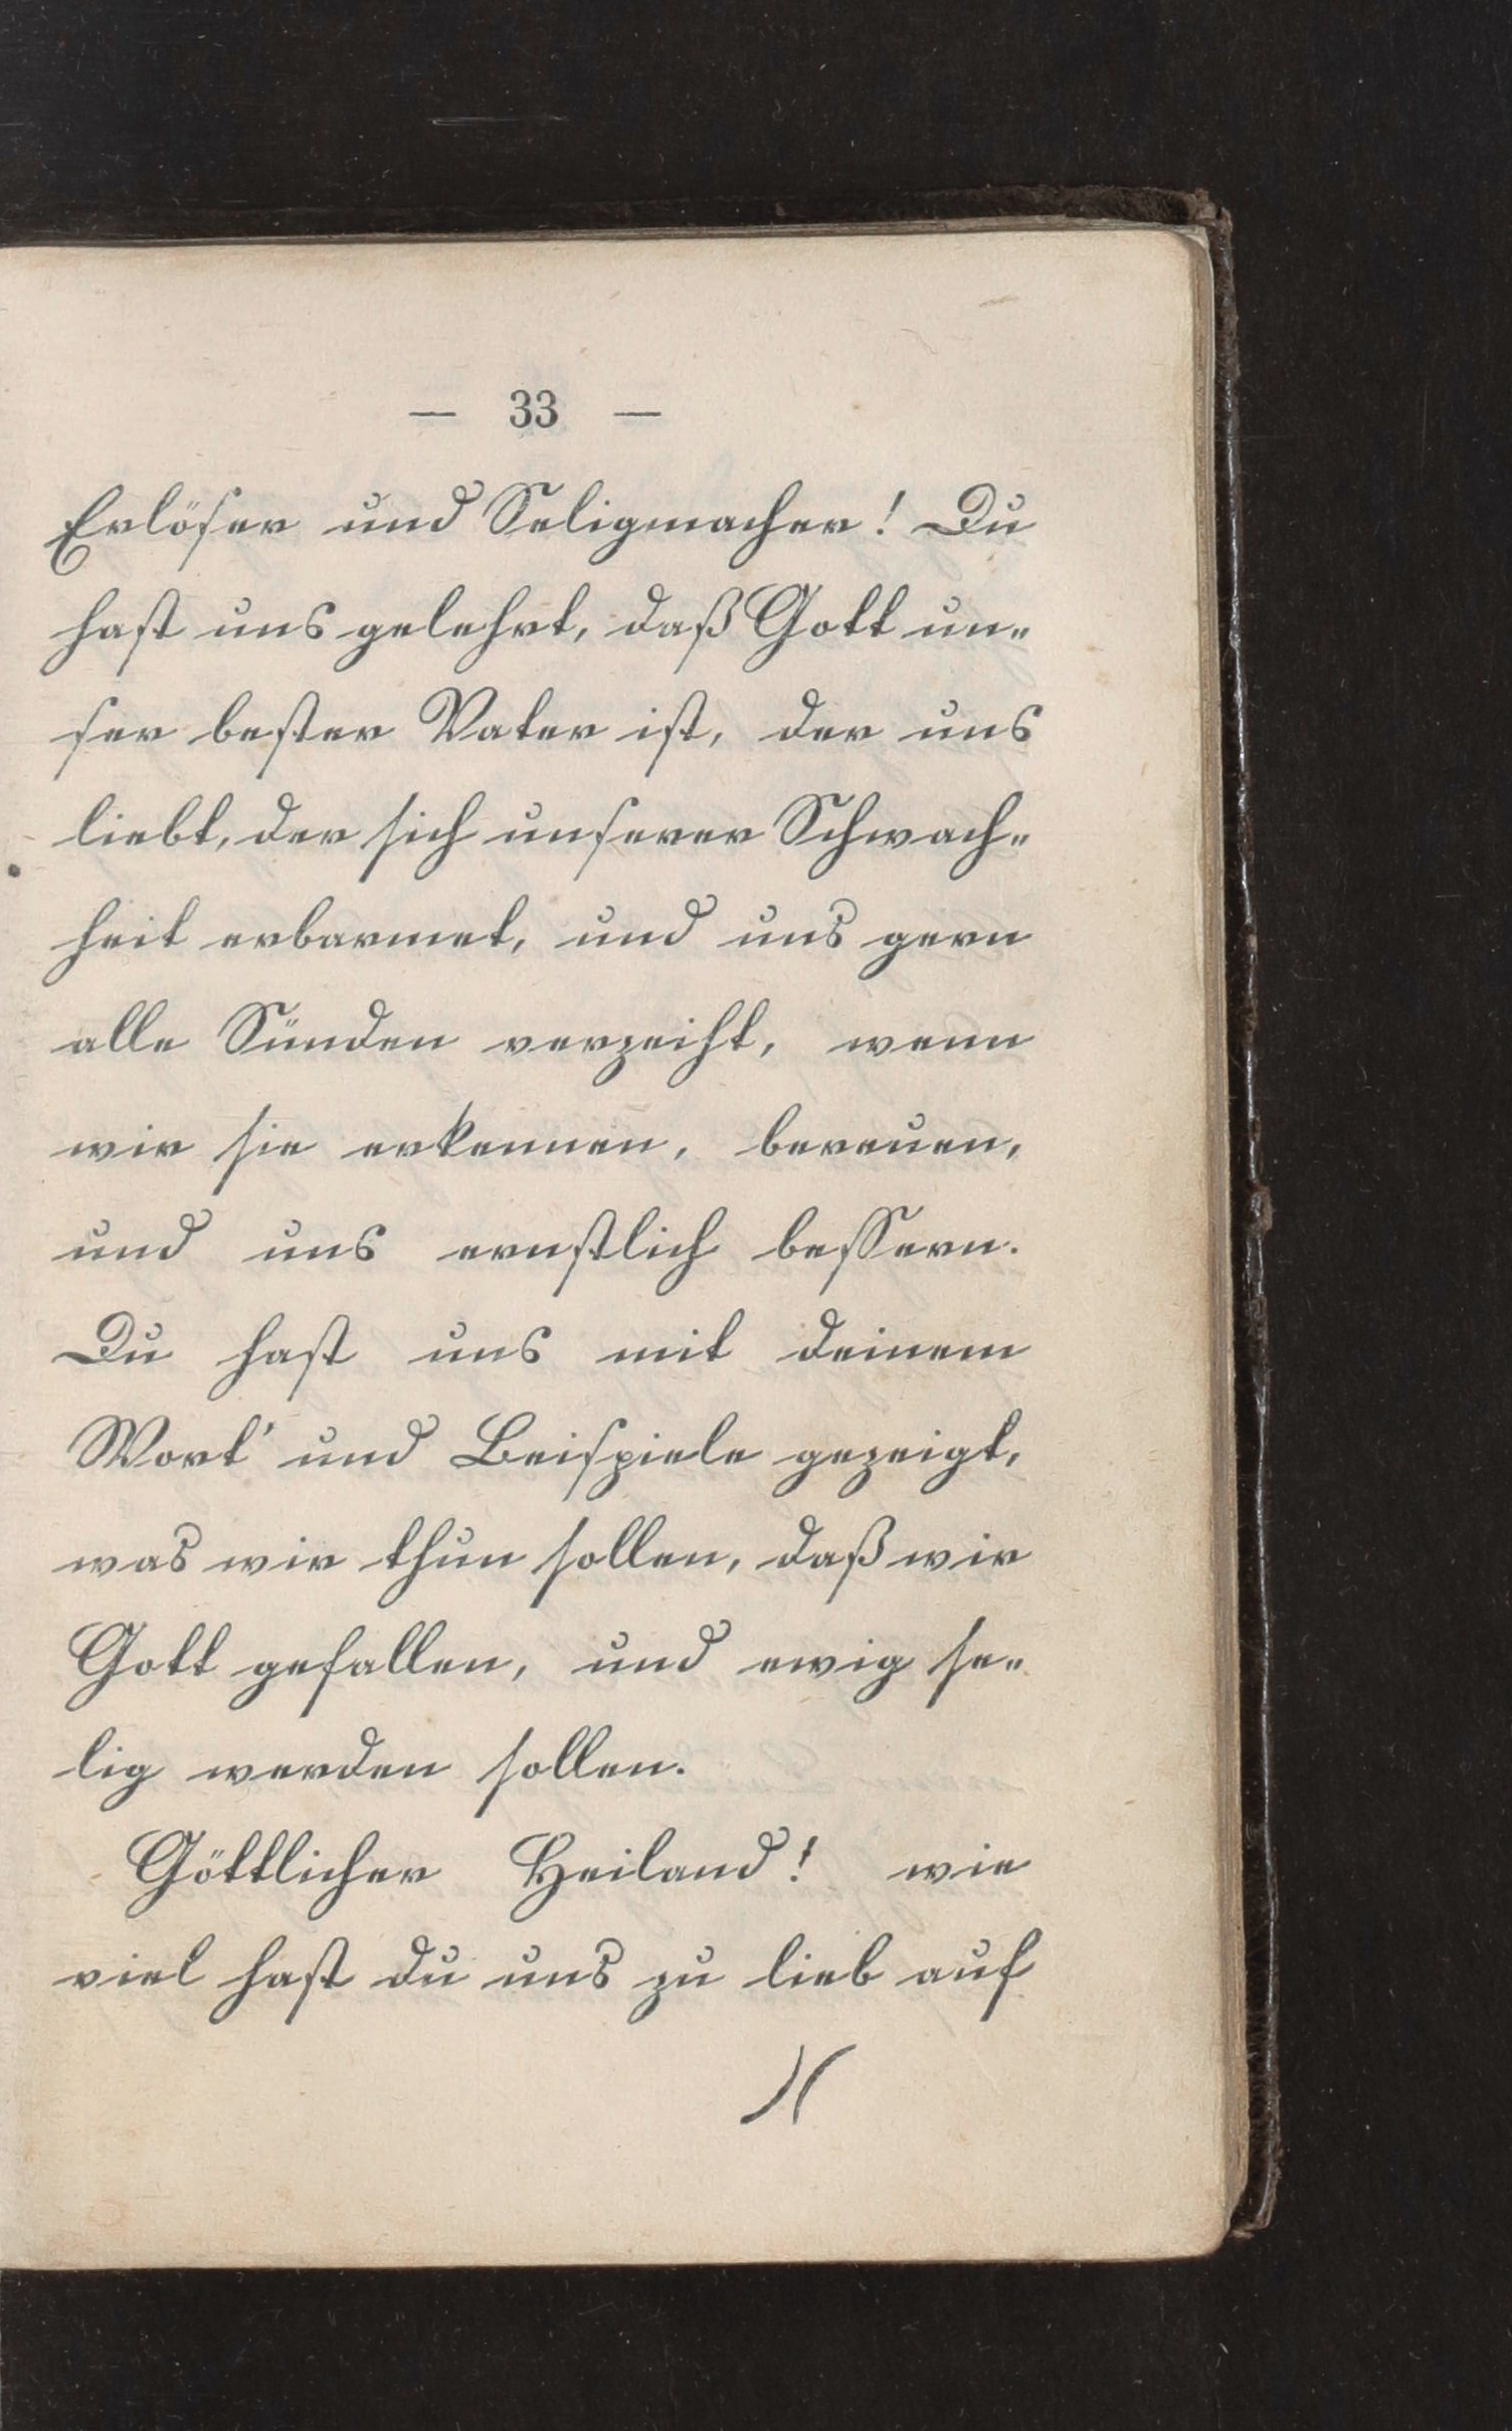 — 33 —
Erlöser und Seligmacher! Du
hast uns gelehrt, daß Gott un-
ser bester Vater ist, der uns
liebt, der sich unserer Schwach-
heit erbarmet, und uns gern
alle Sünden verzeiht, wenn
wir sie erkennen, bereuen,
und uns ernstlich bessern.
Du hast uns mit deinem
Wort' und Beispiele gezeigt,
was wir thun sollen, daß wir
Gott gefallen, und ewig se-
lig werden sollen.
Göttlicher Heiland! wie
viel hast du uns zu lieb auf